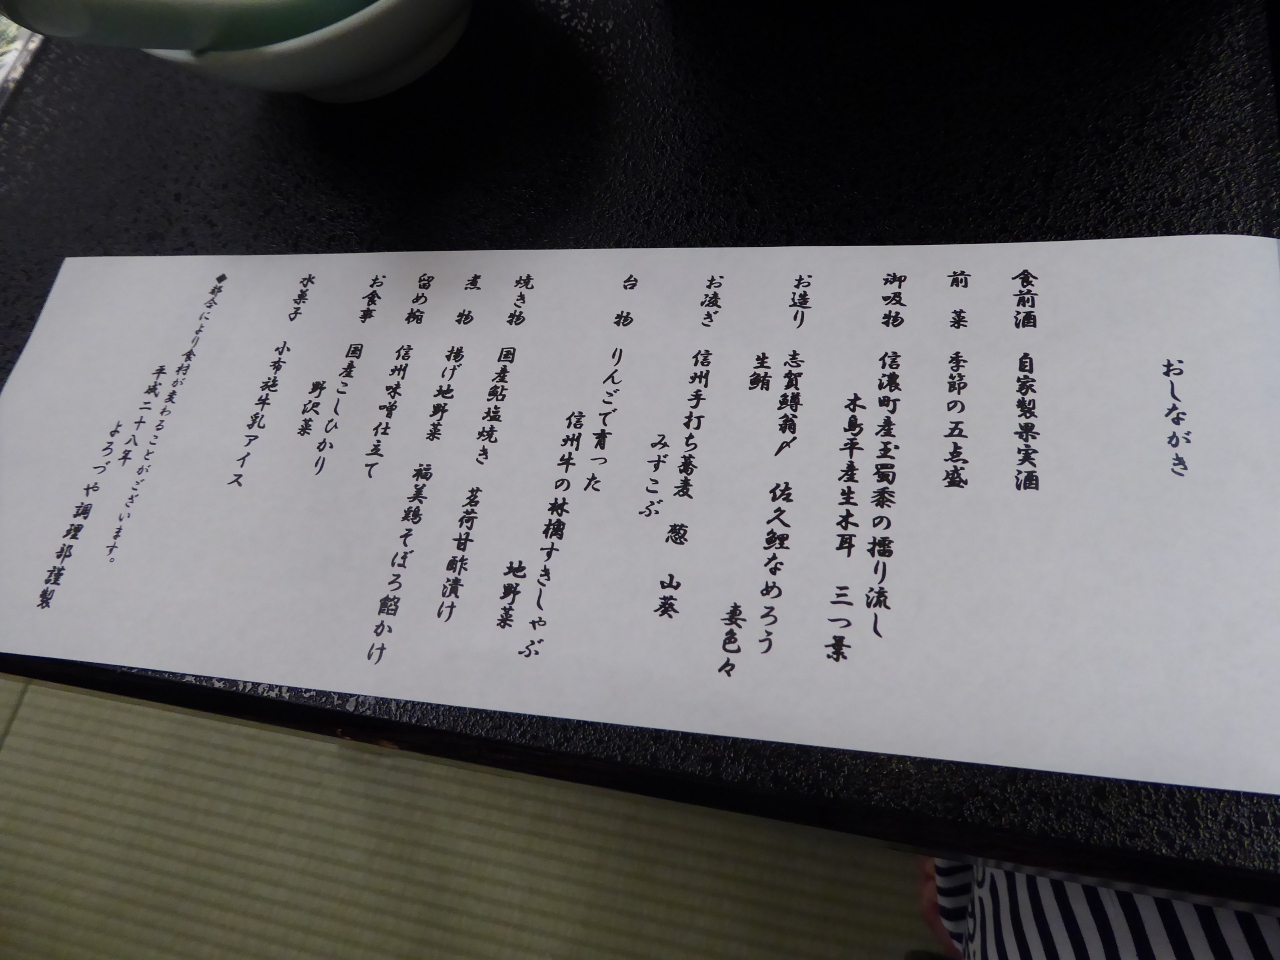 おしながき
食前酒　自家製果実酒
前　菜　季節の五点盛
御吸物　信濃町産玉蜀黍の擂り流し
木島平産生木耳　三つ葉
お造り　志賀鱒翁〆　佐久鯉なめろう
生鮪　妻色々
お凌ぎ　信州手打ち蕎麦　葱　山葵
みずこぶ
台　物　りんごで育った
信州牛の林檎すきしゃぶ
地野菜
焼き物　国産鮎塩焼き　茗荷甘酢漬け
煮　物　揚げ地野菜　福美鶏そぼろ餡かけ
留め椀　信州味噌仕立て
お食事　国産こしひかり
野沢菜
水菓子　小布施牛乳アイス
◆都合により食材が変わることがございます。
平成二十八年
よろづや調理部謹製